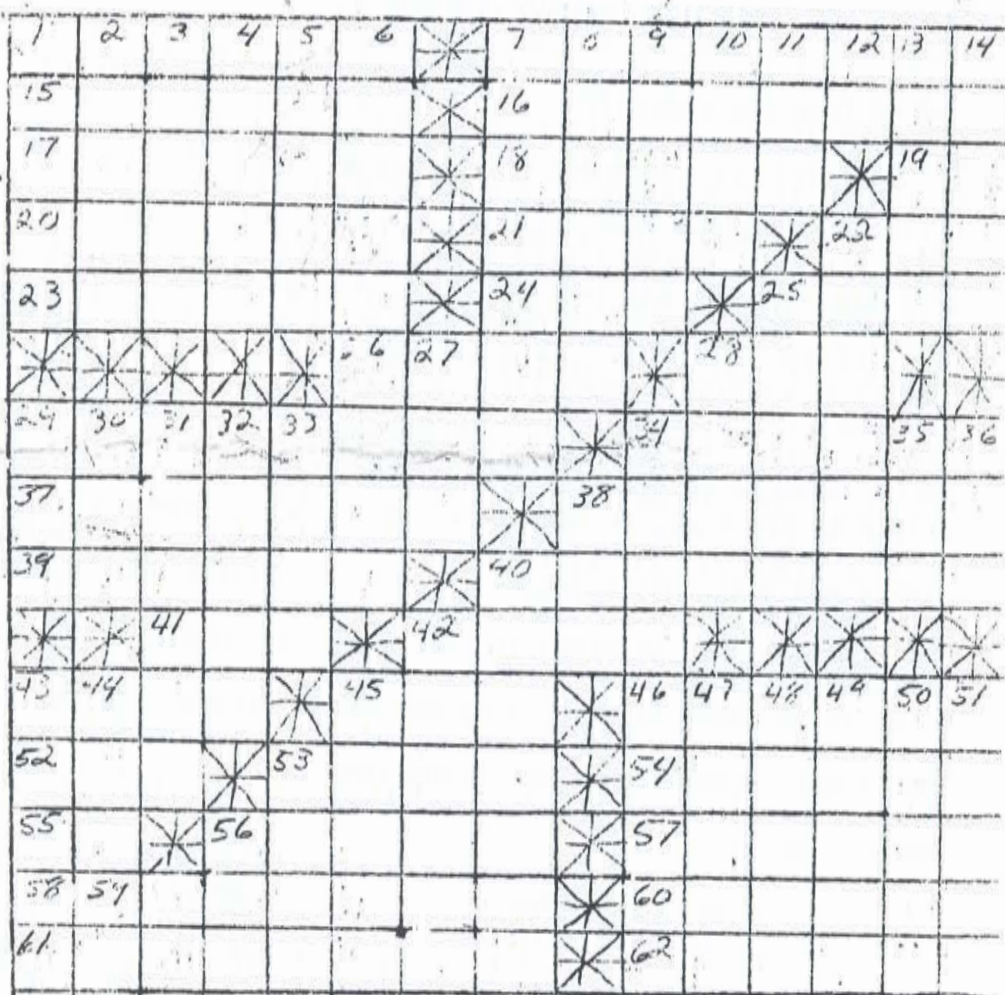 1 2 3 4 5 6 7 8 9 10 11 12 13 14
15 16
17 18 19
20 21 22
23 24 25
26 27 28
29 30 31 32 33 34 35 36
37 38
39 40
41 42
43 44 45 46 47 48 49 50 51
52 53 54
55 56 57
58 59 60
61 62